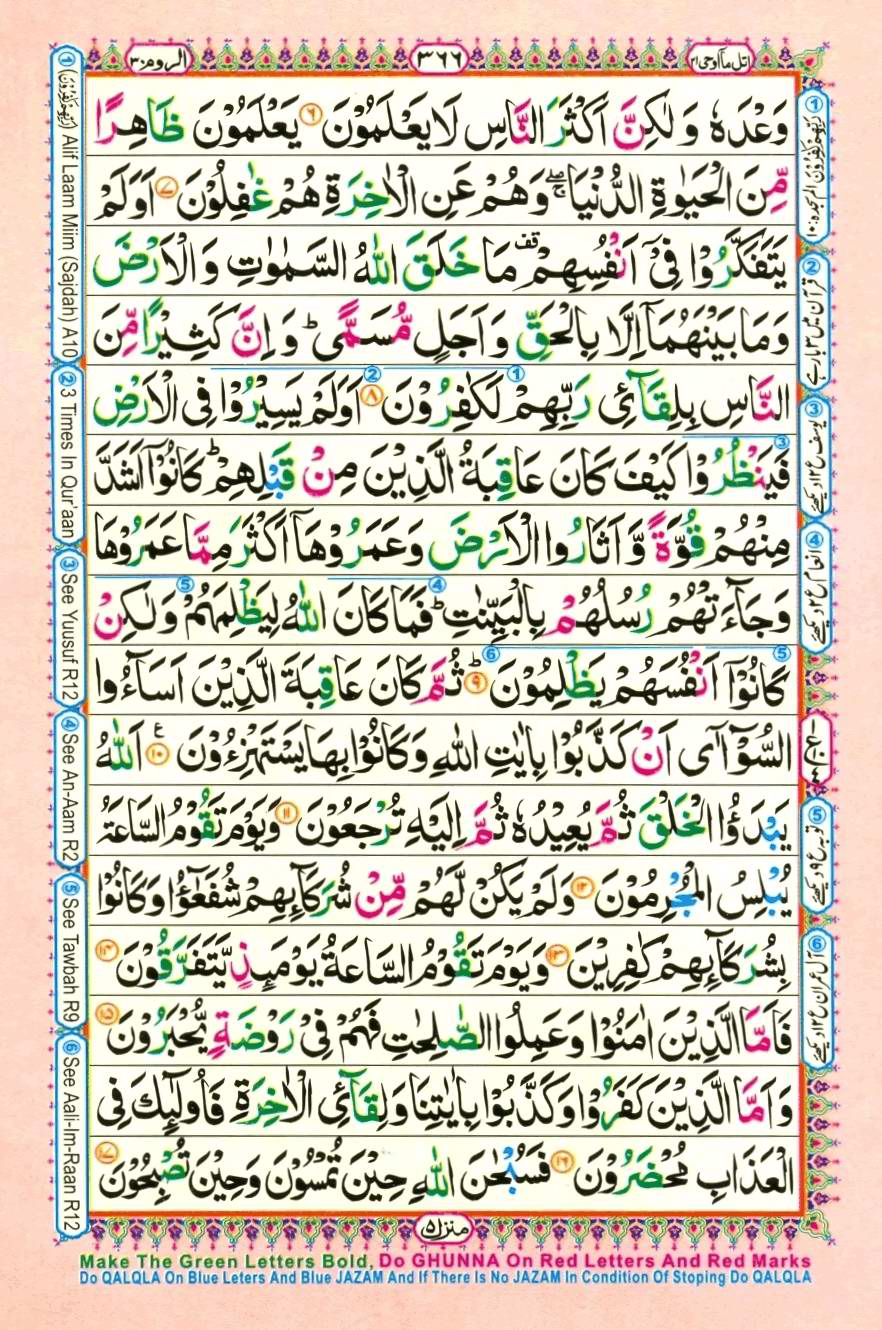 اتل ماۤاوحی ۲۱
۳۶۶
الروم ۳۰
وَعْدَهٗ وَ لٰكِنَّ اَكْثَرَ النَّاسِ لَا يَعْلَمُوْنَ ۶ يَعْلَمُوْنَ ظَاهِرًا
مِّنَ الْحَيٰوةِ الدُّنْيَا ۖۚ وَهُمْ عَنِ الْاٰخِرَةِ هُمْ غٰفِلُوْنَ ۷ اَوَلَمْ
يَتَفَكَّرُوْا فِيْۤ اَنْفُسِهِمْ قف مَا خَلَقَ اللّٰهُ السَّمٰوٰتِ وَ الْاَرْضَ
وَمَا بَيْنَهُمَاۤ اِلَّا بِالْحَقِّ وَ اَجَلٍ مُّسَمًّى ؕ وَ اِنَّ كَثِيْرًا مِّنَ
النَّاسِ بِلِقَآئِ رَبِّهِمْ لَكٰفِرُوْنَ ۸ اَوَلَمْ يَسِيْرُوْا فِى الْاَرْضِ
فَيَنْظُرُوْا كَيْفَ كَانَ عَاقِبَةُ الَّذِيْنَ مِنْ قَبْلِهِمْ ؕ كَانُوْۤا اَشَدَّ
مِنْهُمْ قُوَّةً وَّ اَثَارُوا الْاَرْضَ وَعَمَرُوْهَاۤ اَكْثَرَ مِمَّا عَمَرُوْهَا
وَجَآءَتْهُمْ رُسُلُهُمْ بِالْبَيِّنٰتِ ؕ فَمَا كَانَ اللّٰهُ لِيَظْلِمَهُمْ وَلٰكِنْ
كَانُوْۤا اَنْفُسَهُمْ يَظْلِمُوْنَ ؕ ۹ ثُمَّ كَانَ عَاقِبَةَ الَّذِيْنَ اَسَآءُوا
السُّوْٓاٰۤى اَنْ كَذَّبُوْا بِاٰيٰتِ اللّٰهِ وَكَانُوْا بِهَا يَسْتَهْزِءُوْنَ ۱۰ ع اَللّٰهُ
يَبْدَؤُا الْخَلْقَ ثُمَّ يُعِيْدُهٗ ثُمَّ اِلَيْهِ تُرْجَعُوْنَ ۱۱ وَيَوْمَ تَقُوْمُ السَّاعَةُ
يُبْلِسُ الْمُجْرِمُوْنَ ۱۲ وَلَمْ يَكُنْ لَّهُمْ مِّنْ شُرَكَآىِٕهِمْ شُفَعٰٓؤُا وَكَانُوْا
بِشُرَكَآىِٕهِمْ كٰفِرِيْنَ ۱۳ وَيَوْمَ تَقُوْمُ السَّاعَةُ يَوْمَىِٕذٍ يَّتَفَرَّقُوْنَ ۱۴
فَاَمَّا الَّذِيْنَ اٰمَنُوْا وَعَمِلُوا الصّٰلِحٰتِ فَهُمْ فِيْ رَوْضَةٍ يُّحْبَرُوْنَ ۱۵
وَاَمَّا الَّذِيْنَ كَفَرُوْا وَكَذَّبُوْا بِاٰيٰتِنَا وَلِقَآئِ الْاٰخِرَةِ فَاُولٰٓىِٕكَ فِى
الْعَذَابِ مُحْضَرُوْنَ ۱۶ فَسُبْحٰنَ اللّٰهِ حِيْنَ تُمْسُوْنَ وَحِيْنَ تُصْبِحُوْنَ ۱۷
منزل ۵
① ربهم كٰفرون الم سجده: ۱۰
② قرآن میں ۳ بار ہے
③ یوسف ع ۱۲ دیکھئے
④ انعام ع ۲ دیکھئے
⑤ توبہ ع ۹ دیکھئے
⑥ آل عمران ع ۱۲ دیکھئے
① (ربهم كٰفرون) Alif Laam Miim (Sajdah) A10
② 3 Times In Qur'aan
③ See Yuusuf R12
④ See An-Aam R2
⑤ See Tawbah R9
⑥ See Aali-Im-Raan R12
Make The Green Letters Bold, Do GHUNNA On Red Letters And Red Marks
Do QALQLA On Blue Leters And Blue JAZAM And If There Is No JAZAM In Condition Of Stoping Do QALQLA